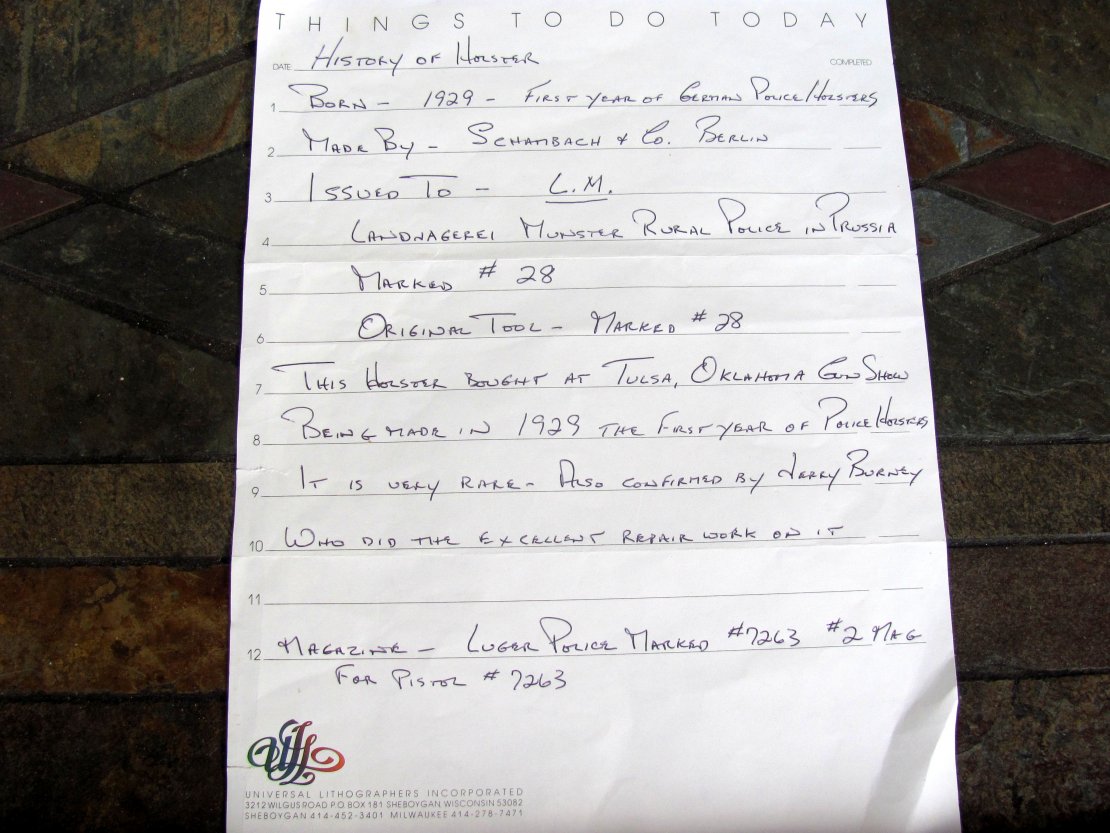 THINGS TO DO TODAY
DATE HISTORY OF HOLSTER COMPLETED
1 BORN - 1929 - FIRST YEAR OF GERMAN POLICE HOLSTERS
2 MADE BY - SCHAMBACH & CO. BERLIN
3 ISSUED TO - L.M.
4 LANDNAGEREI MUNSTER RURAL POLICE IN PRUSSIA
5 MARKED # 28
6 ORIGINAL TOOL - MARKED # 28
7 THIS HOLSTER BOUGHT AT TULSA, OKLAHOMA GUN SHOW
8 BEING MADE IN 1929 THE FIRST YEAR OF POLICE HOLSTERS
9 IT IS VERY RARE - ALSO CONFIRMED BY JERRY BURNEY
10 WHO DID THE EXCELLENT REPAIR WORK ON IT
11
12 MAGAZINE - LUGER POLICE MARKED #7263 #2 MAG
FOR PISTOL # 7263
ULI
UNIVERSAL LITHOGRAPHERS INCORPORATED
3212 WILGUS ROAD P.O. BOX 181 SHEBOYGAN WISCONSIN 53082
SHEBOYGAN 414-452-3401 MILWAUKEE 414-278-7471